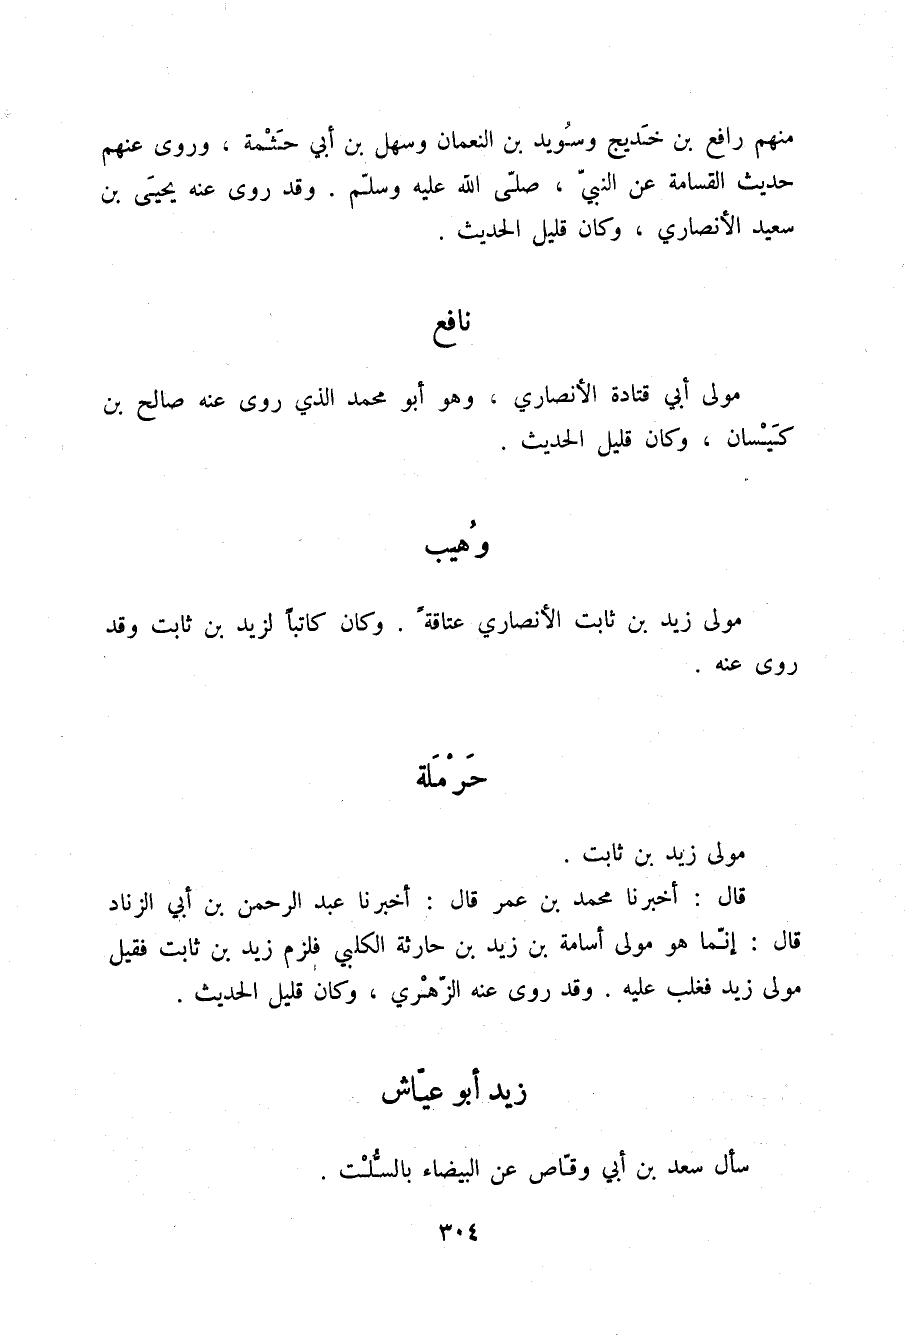 منهم رافع بن خَديج وسُويد بن النعمان وسهل بن أبي حَثْمة ، وروى عنهم
حديث القسامة عن النبيّ ، صلّى الله عليه وسلّم . وقد روى عنه يحيَى بن
سعيد الأنصاري ، وكان قليل الحديث .
نافع
مولى أبي قتادة الأنصاري ، وهو أبو محمد الذي روى عنه صالح بن
كَيْسان ، وكان قليل الحديث .
وُهيب
مولى زيد بن ثابت الأنصاري عتاقةً . وكان كاتباً لزيد بن ثابت وقد
روى عنه .
حَرْمَلة
مولى زيد بن ثابت .
قال : أخبرنا محمد بن عمر قال : أخبرنا عبد الرحمن بن أبي الزناد
قال : إنّما هو مولى أسامة بن زيد بن حارثة الكلبي فلزم زيد بن ثابت فقيل
مولى زيد فغلب عليه . وقد روى عنه الزّهْري ، وكان قليل الحديث .
زيد أبو عيّاش
سأل سعد بن أبي وقّاص عن البيضاء بالسُّلْت .
٣٠٤